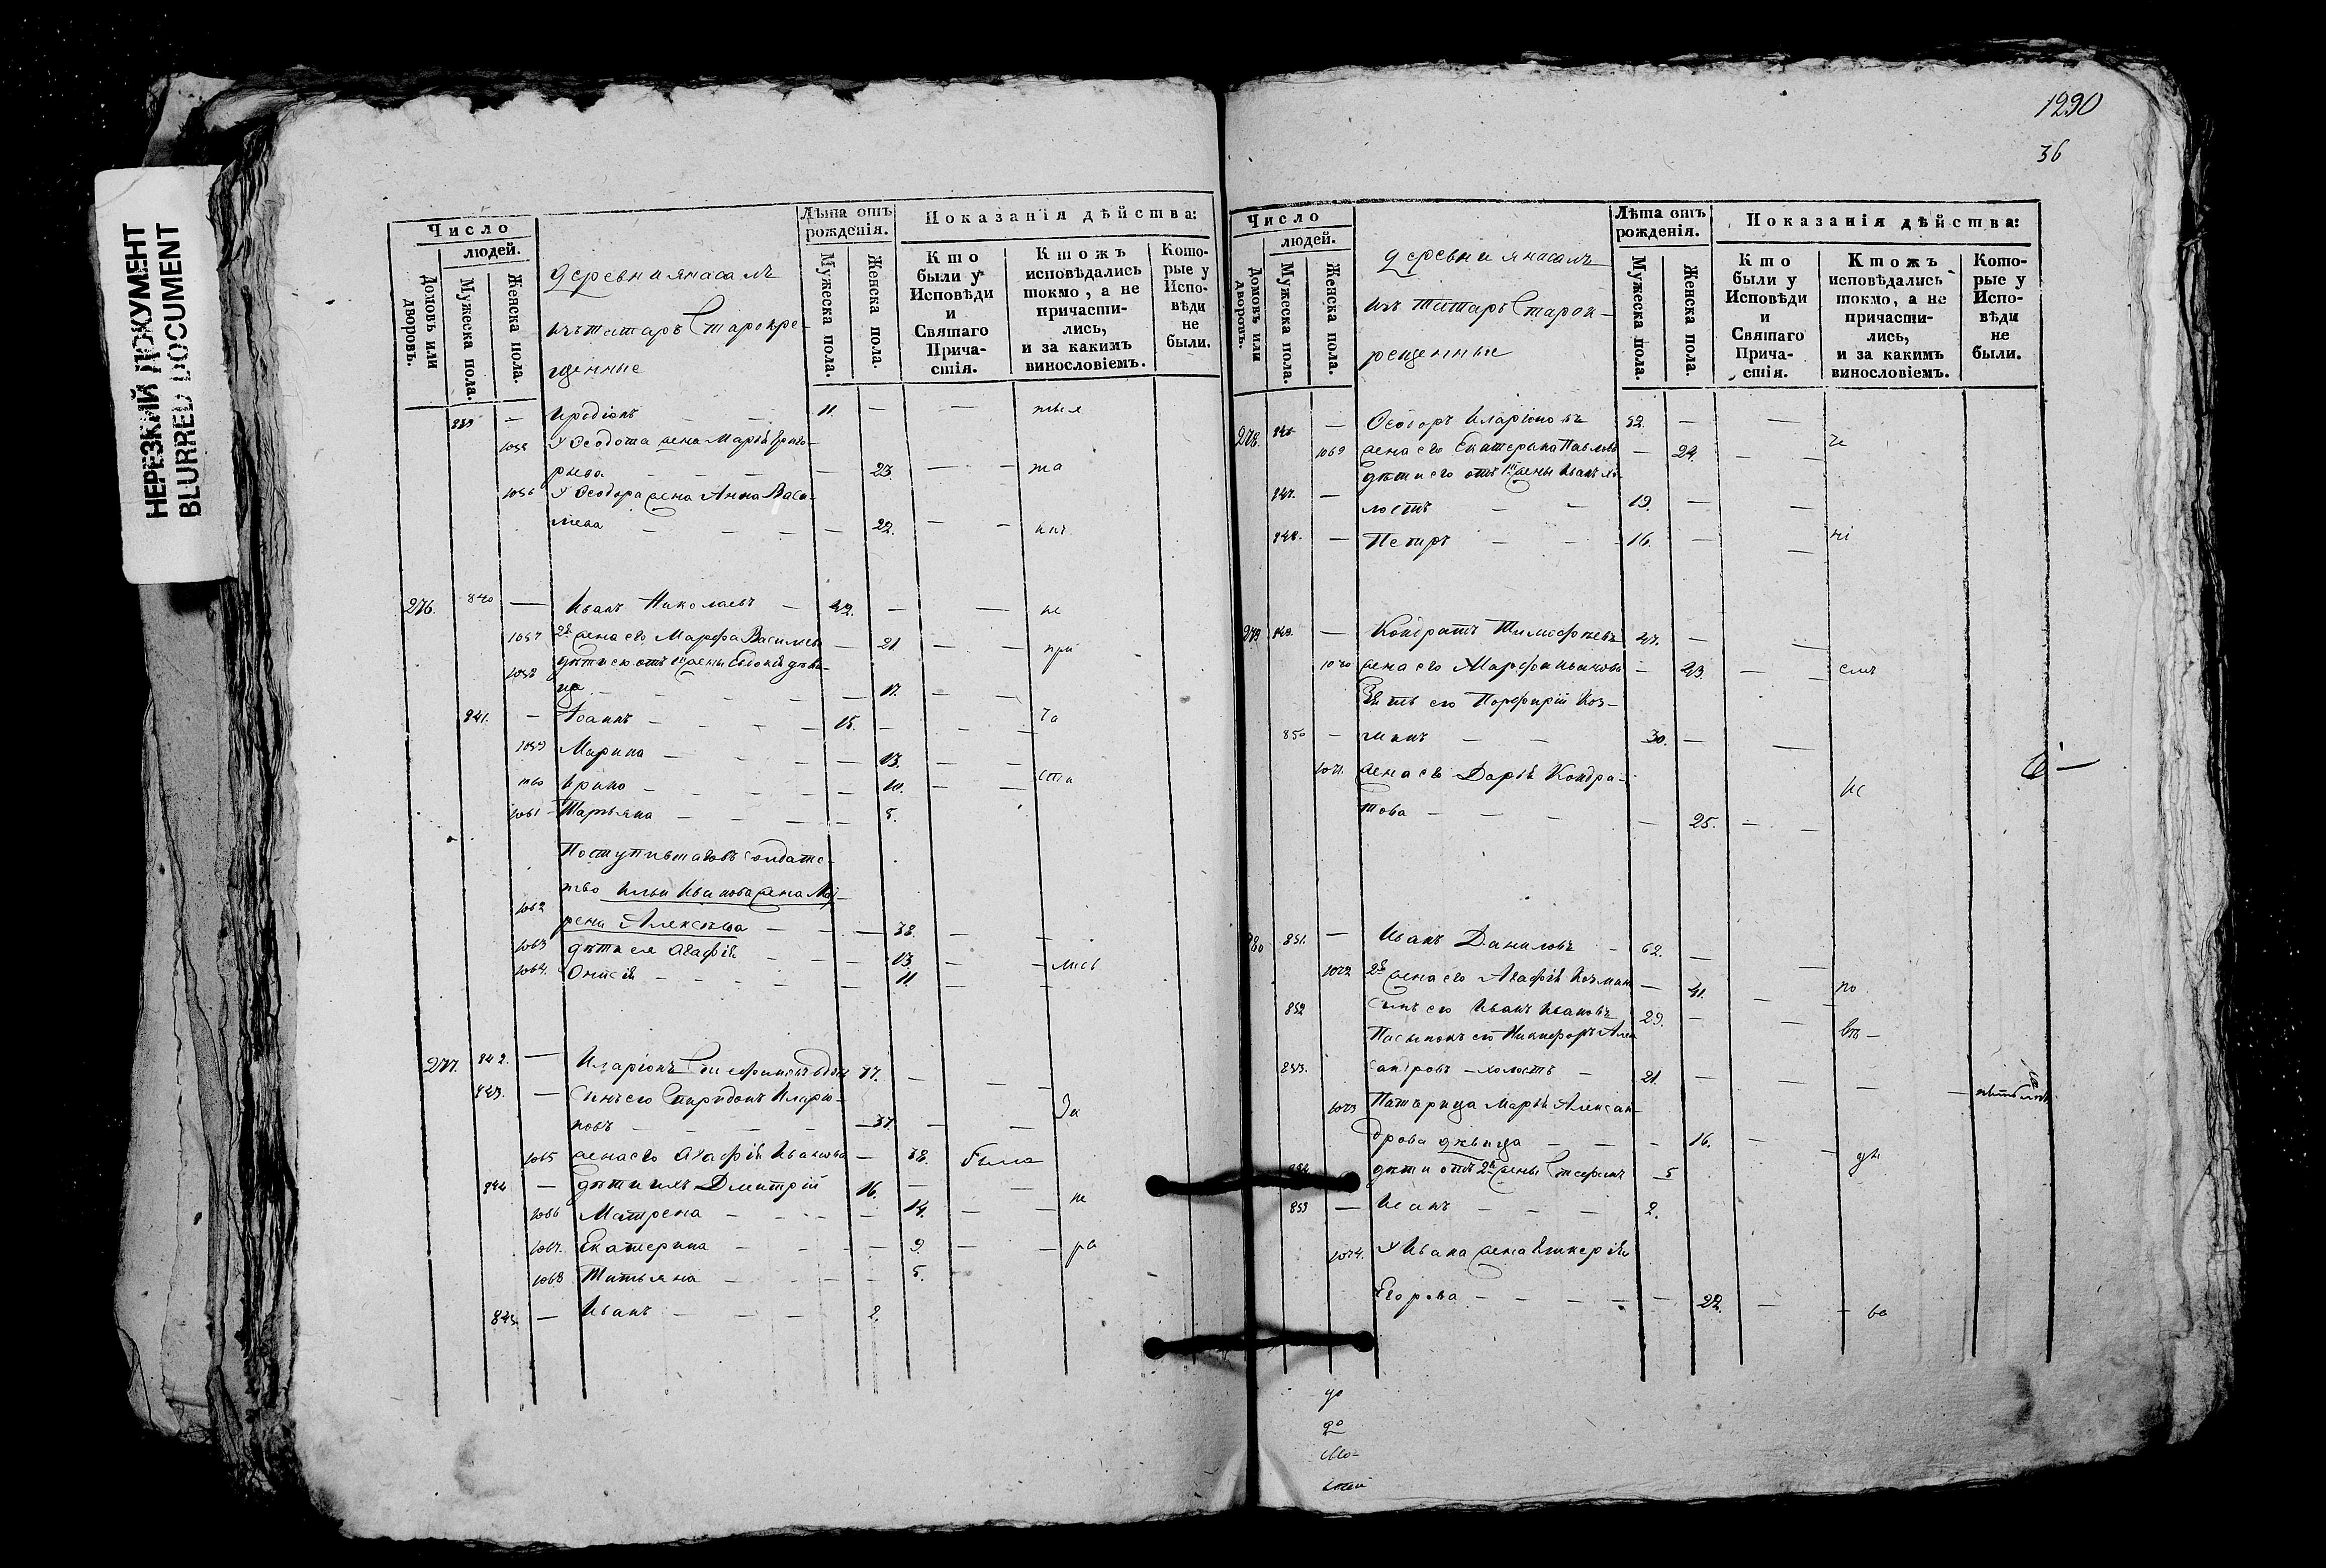 НЕРЕЗКИЙ ДОКУМЕНТ
BLURRED DOCUMENT
Число
людей.
Домовъ или дворовъ.
Мужеска пола.
Женска пола.
деревни
изъ татаръ Старокре-
щенные
Лѣта отъ рожденія.
Мужеска пола.
Женска пола.
Показанія дѣйства:
Кто были у Исповѣди и Святаго Прича-стія.
Ктожъ исповѣдались токмо, а не причасти-лись, и за какимъ винословіемъ.
Кото-рые у Испо-вѣди не были.
839 — Иродіонъ — — 11. — —
1055 У Ѳеодота жена Марія Григо-
рьева — — 23. — — та
1056 У Ѳеодора жена Анна Васи-
льева — — — 22. — —
276. 840 — Иванъ Николаевъ — 42. — — не
1057 2я жена его Марфа Василева — 21 — — при
1058 дѣти его отъ 1й жены Евдокія дѣви-
ца — — — — 17. — —
841. — Іоаннъ — — — 15. — — — ча
1059 Марина — — — — 13. — —
1060 Ирина — — — — 10. — — сти
1061 Татьяна — — — — 5.
Поступившаго въ солдатс-
тво Ильи Иванова жена Мат-
1062 рена Алексѣева — — 38. — —
1063 дѣти ея Агафія — — — 13 — — лись
1064. Онисія — — — — 11 — —
277. 842. — Иларіонъ Стефановъ вдовъ 77. — — —
843. — Сынъ его Спиридонъ Иларіо-
новъ — — — — 37. — — За
1065 жена его Агафія Иванова — 38. была
844 — дѣти ихъ Дмитрій 16. — — не
1066 Матрена — — — — 14. — —
1067. Екатерина — — — 9. — — ра
1068 Татьяна — — — 5.
845. — Иванъ — — — 2.
1290
36
Число
людей.
Домовъ или дворовъ.
Мужеска пола.
Женска пола.
деревни
изъ татаръ Старок-
рещенные
Лѣта отъ рожденія.
Мужеска пола.
Женска пола.
Показанія дѣйства:
Кто были у Исповѣди и Святаго Прича-стія.
Ктожъ исповѣдались токмо, а не причасти-лись, и за какимъ винословіемъ.
Кото-рые у Испо-вѣди не были.
278. 846 — Ѳеодоръ Иларіоновъ 52. — —
1069 жена его Екатерина Павлова — 24. — —
дѣти его отъ 1й жены Иванъ хо-
847. — лостъ — — 19. — —
848. — Петръ — — 16. — — ні
279 849. — Кондратъ Тимофеевъ 47. — —
1070 жена его Марфа Иванова — 43. — — емъ
Зять его Порфирій Коз-
850 — минъ — — 30. — —
1071. жена его Дарія Кондра-
това — — — — 25. — — не
280 851. — Иванъ Даниловъ — 62. — —
1072 2я жена его Агафія Козмина — 41. — — по
852 Сынъ его Иванъ Ивановъ 29. — —
Пасынокъ его Никифоръ Алек
853. сандровъ — холостъ — 21. — — — —
1073 Падчерица Марія Алексан-
дрова дѣвица — — — 16. — —
дѣти отъ 2й жены Стефанъ 5
— Исакъ — — — 2.
1074. У Ивана жена Гликерія
Егорова — — — — — 22. — — ва